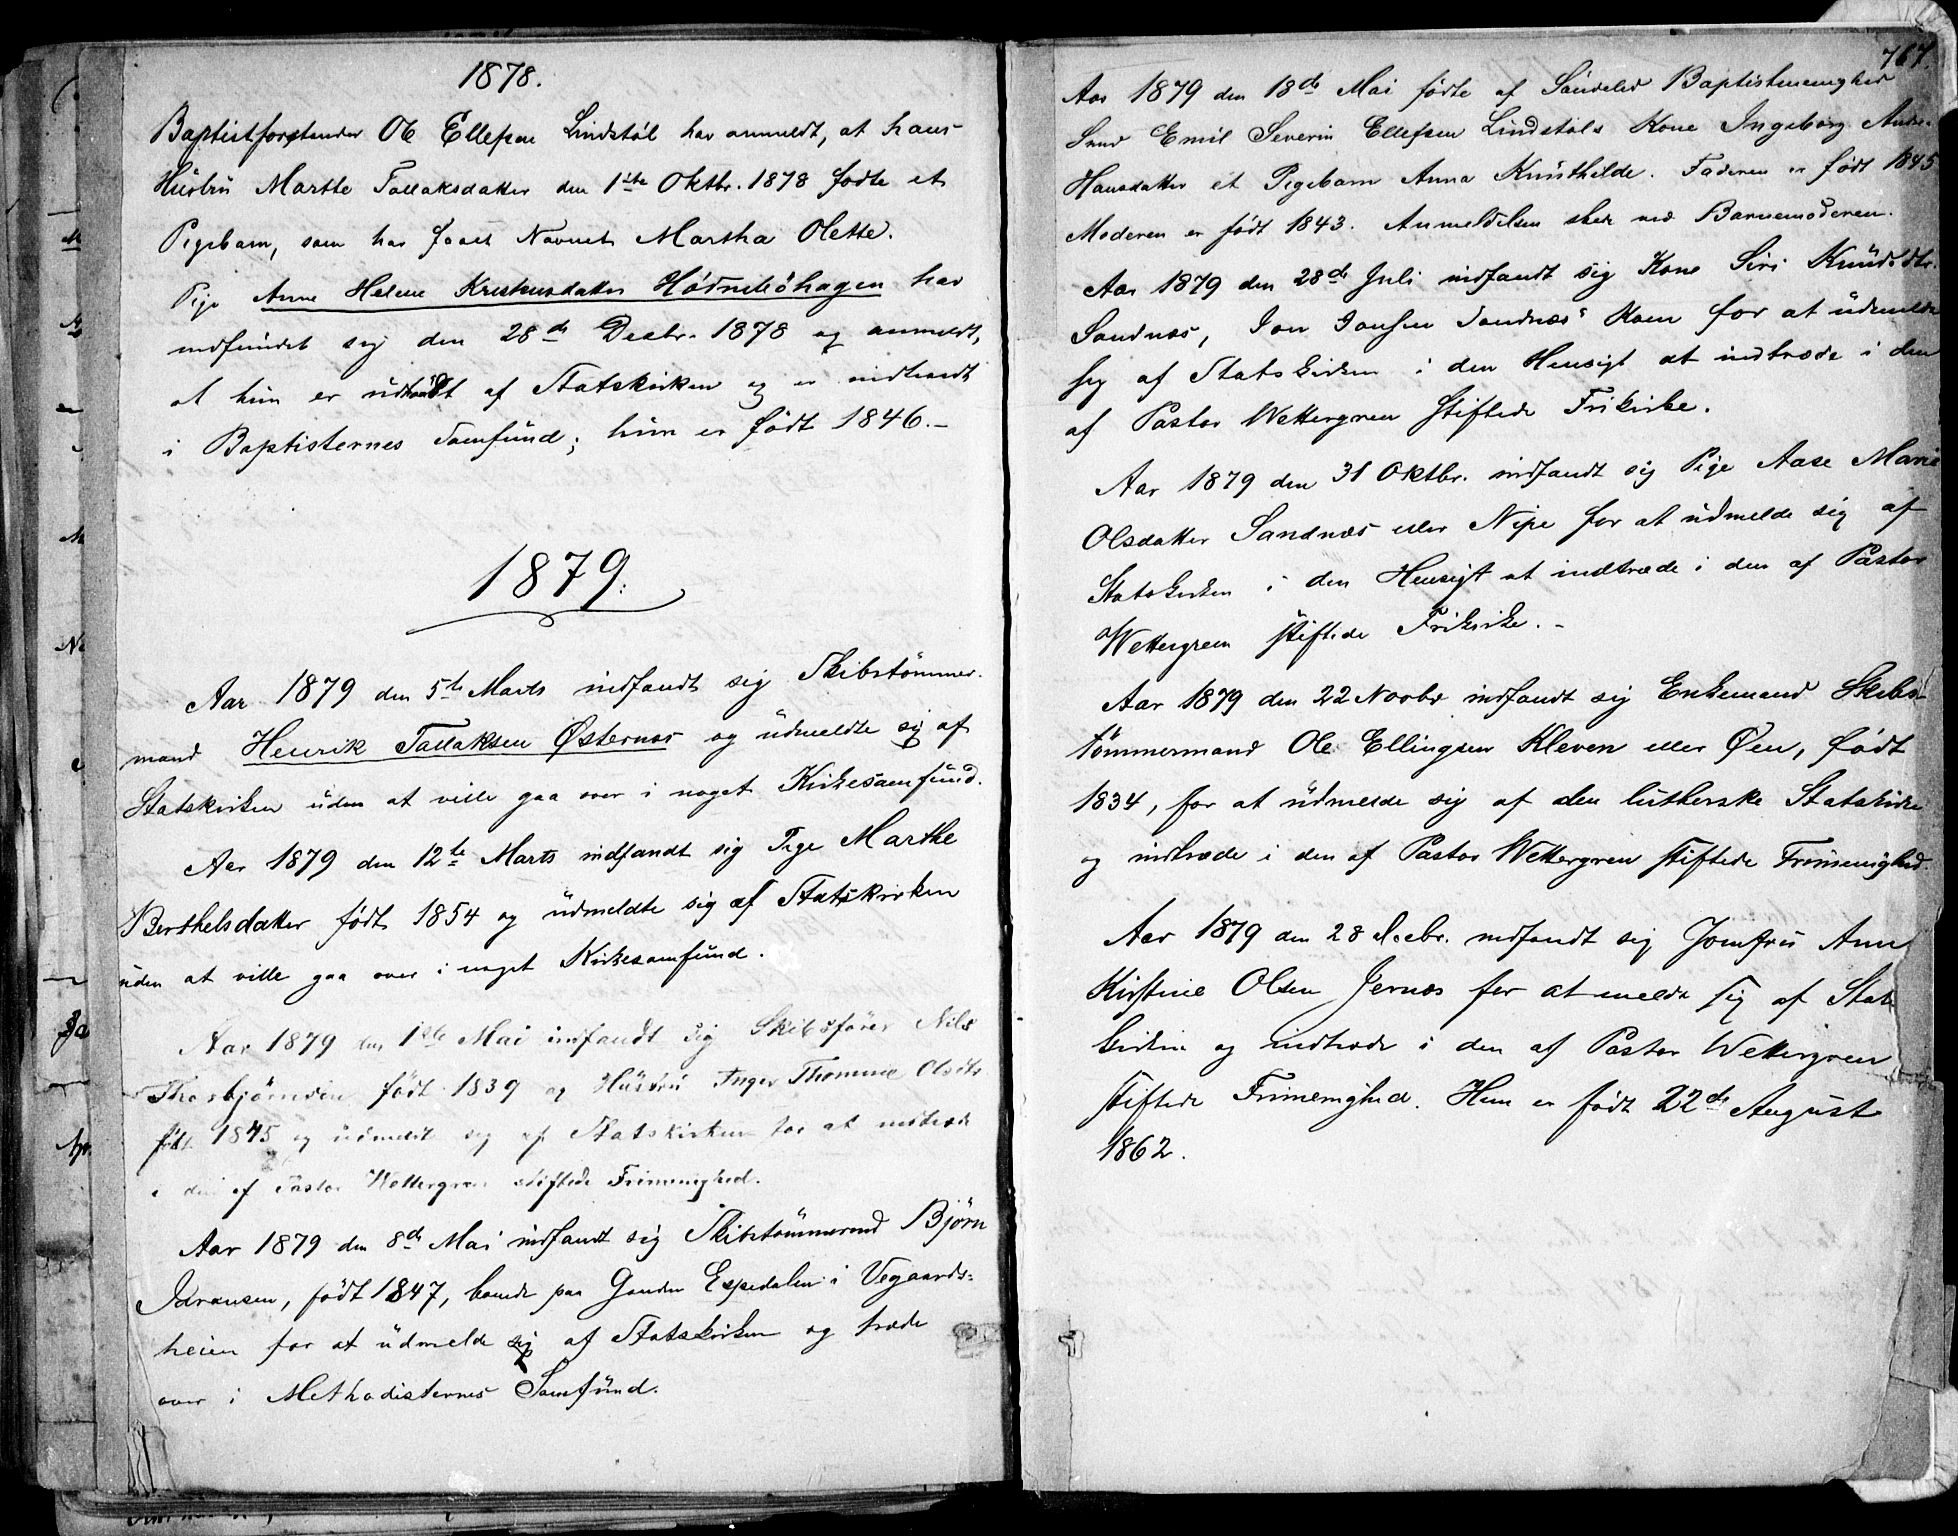 1878.
Baptistforstander Ole Ellefsen Lindstøl har anmeldt, at hans
Hüstrü Marthe Tallaksdatter den 1ste Oktbr. 1878 fødte et
Pigebarn, som har faaet Navnet Martha Olette.
Pige Anne Helene Kristensdatter Hødnebøhagen har
indfundet sig den 28de Decbr. 1878 og anmeldt,
at hün er üdtraadt af Statskirken og er indtraadt
i Baptisternes Samfünd; hün er født 1846.-
1879.
Aar 1879 den 5te Marts indfandt sig Skibstömmer-
mand Henrik Tallaksen Østernes og üdmeldte sig af
Statskirken üden at ville gaa over i noget Kirkesamfünd.
Aar 1879 den 12te Marts indfandt sig Pige Marthe
Berthelsdatter født 1854 og üdmeldte sig af Statskirken
üden at ville gaa over i noget Kirkesamfünd.
Aar 1879 den 1ste Mai indfandt sig Skibsfører Nils
Thorbjørnsen født 1839 og Hüstrü Inger Thomine Olsdtr
født 1845 og üdmeldt sig af Statskirken for at indtræde
i den af Pastor Wettergren stiftede Frimenighed.
Aar 1879 den 8de Mai indfandt sig Skibstömmermd Bjørn
födt 1847, boende paa Gaarden Espedalen i Vegaards-
heien for at üdmelde sig af Statskirken og træde
over i Methodisternes Samfünd.
767.
Aar 1879 den 18de Mai fødte af Søndeled Baptistmenighed
Emil Severin Ellefsen Lindstøls Kone Ingeborg Andrea
Hansdatter et Pigebarn Anna Künthilde. Faderen er født 1845
Moderen er født 1843. Anmeldelsen skede ved Barnemoderen.
Aar 1879 den 28de Juli indfandt sig Kone Siri Knüdsdtr.
Sandnæs, Jon Jonsen Sandnæs' Kone for at üdmelde
sig af Statskirken i den Hensigt at indtræde i den
af Pastor Wettergren stiftede Frikirke.
Aar 1879 den 31 Oktbr. indfandt sig Pige Aase Marie
Olsdatter Sandnæs eller Nipe for at üdmelde sig af
Statskirken i den Hensigt at indtræde i den af Pastor
Wettergren stiftede Frikirke.-
Aar 1879 den 22 Novbr indfandt sig Enkemand Skibs-
tömmermand Ole Ellingsen Kleven eller Øen, født
1834, for at üdmelde sig af den lutherske Statskirke
og indtræde i den af Pastor Wettergren stiftede Frimenighed.
Aar 1879 den 28 Decbr. indfandt sig Jomfrü Anne
Kirstine Olsen Jernæs for at melde sig af Stats
kirken og indtræde i den af Pastor Wettergren
stiftede Frimenighed. Hun er født 22de August
1862.